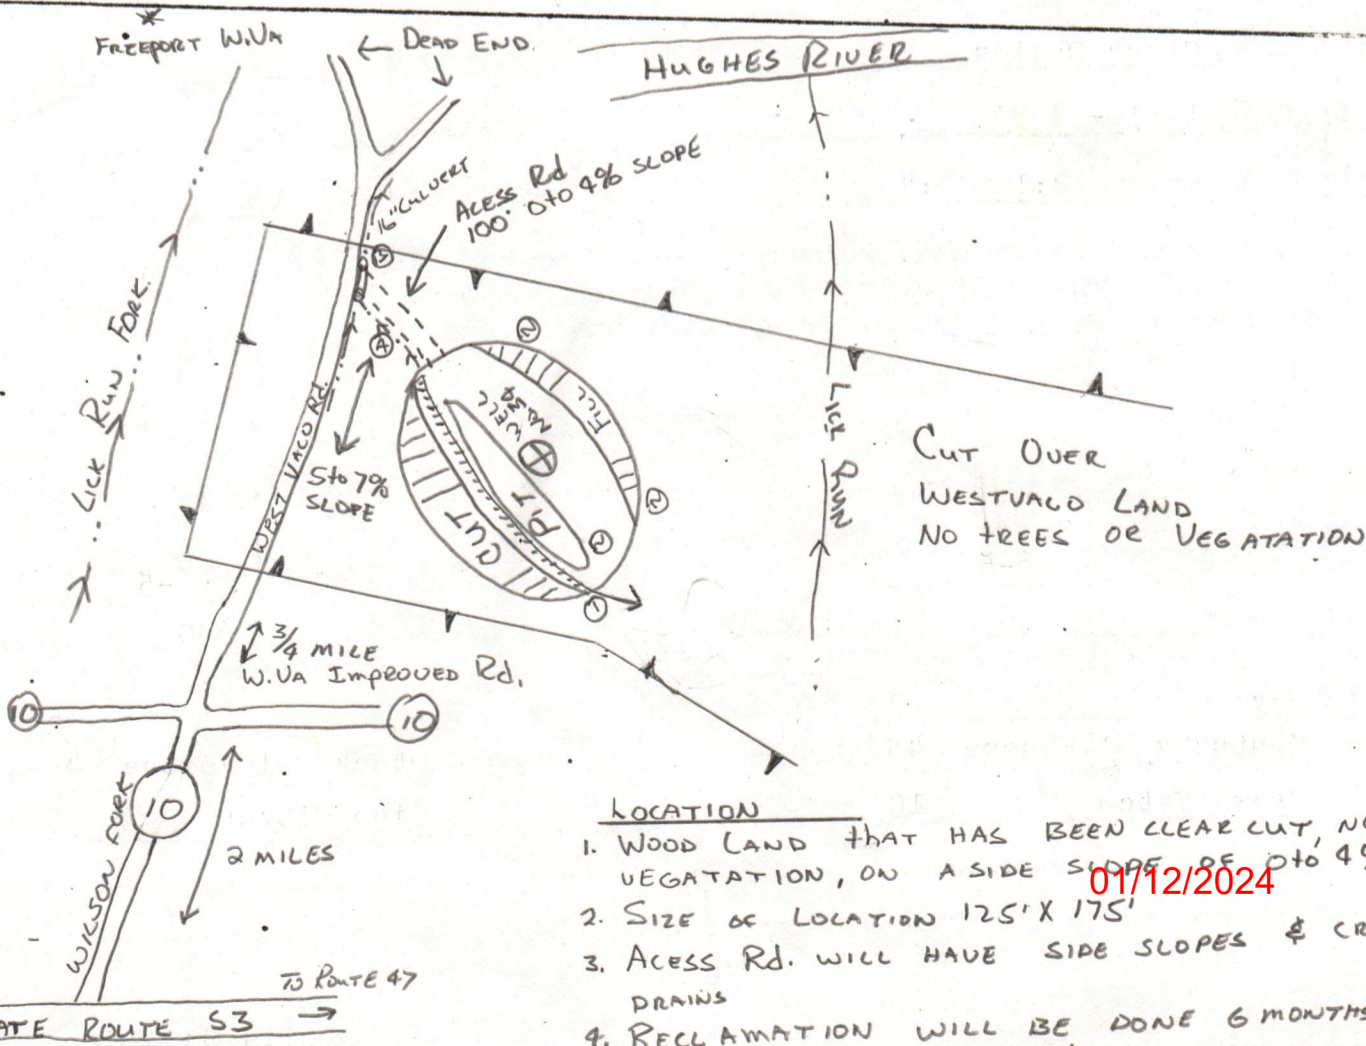 FREEPORT W.VA
← DEAD END.
HUGHES RIVER
16" CULVERT
ACESS Rd
100' 0 to 4% SLOPE
LICK RUN FORK.
WEST VACO Rd.
5 to 7%
SLOPE
FILL
WELL
No. 34
PIT
CUT
1
2
2
3
LICK RUN
CUT OVER
WESTVACO LAND
NO tREES OR VEGATATION
3/4 MILE
W.VA IMPROVED Rd.
10
10
10
WILKSON FORK
2 MILES
TO ROUTE 47
ATE ROUTE 53 →
LOCATION
1. WOOD LAND thAT HAS BEEN CLEAR CUT, NO
VEGATATION, ON A SIDE SLOPE OF 0 to 4%
01/12/2024
2. SIZE OF LOCATION 125' X 175'
3. ACESS Rd. WILL HAVE SIDE SLOPES & CR
DRAINS
4. RECLAMATION WILL BE DONE 6 MONTHS